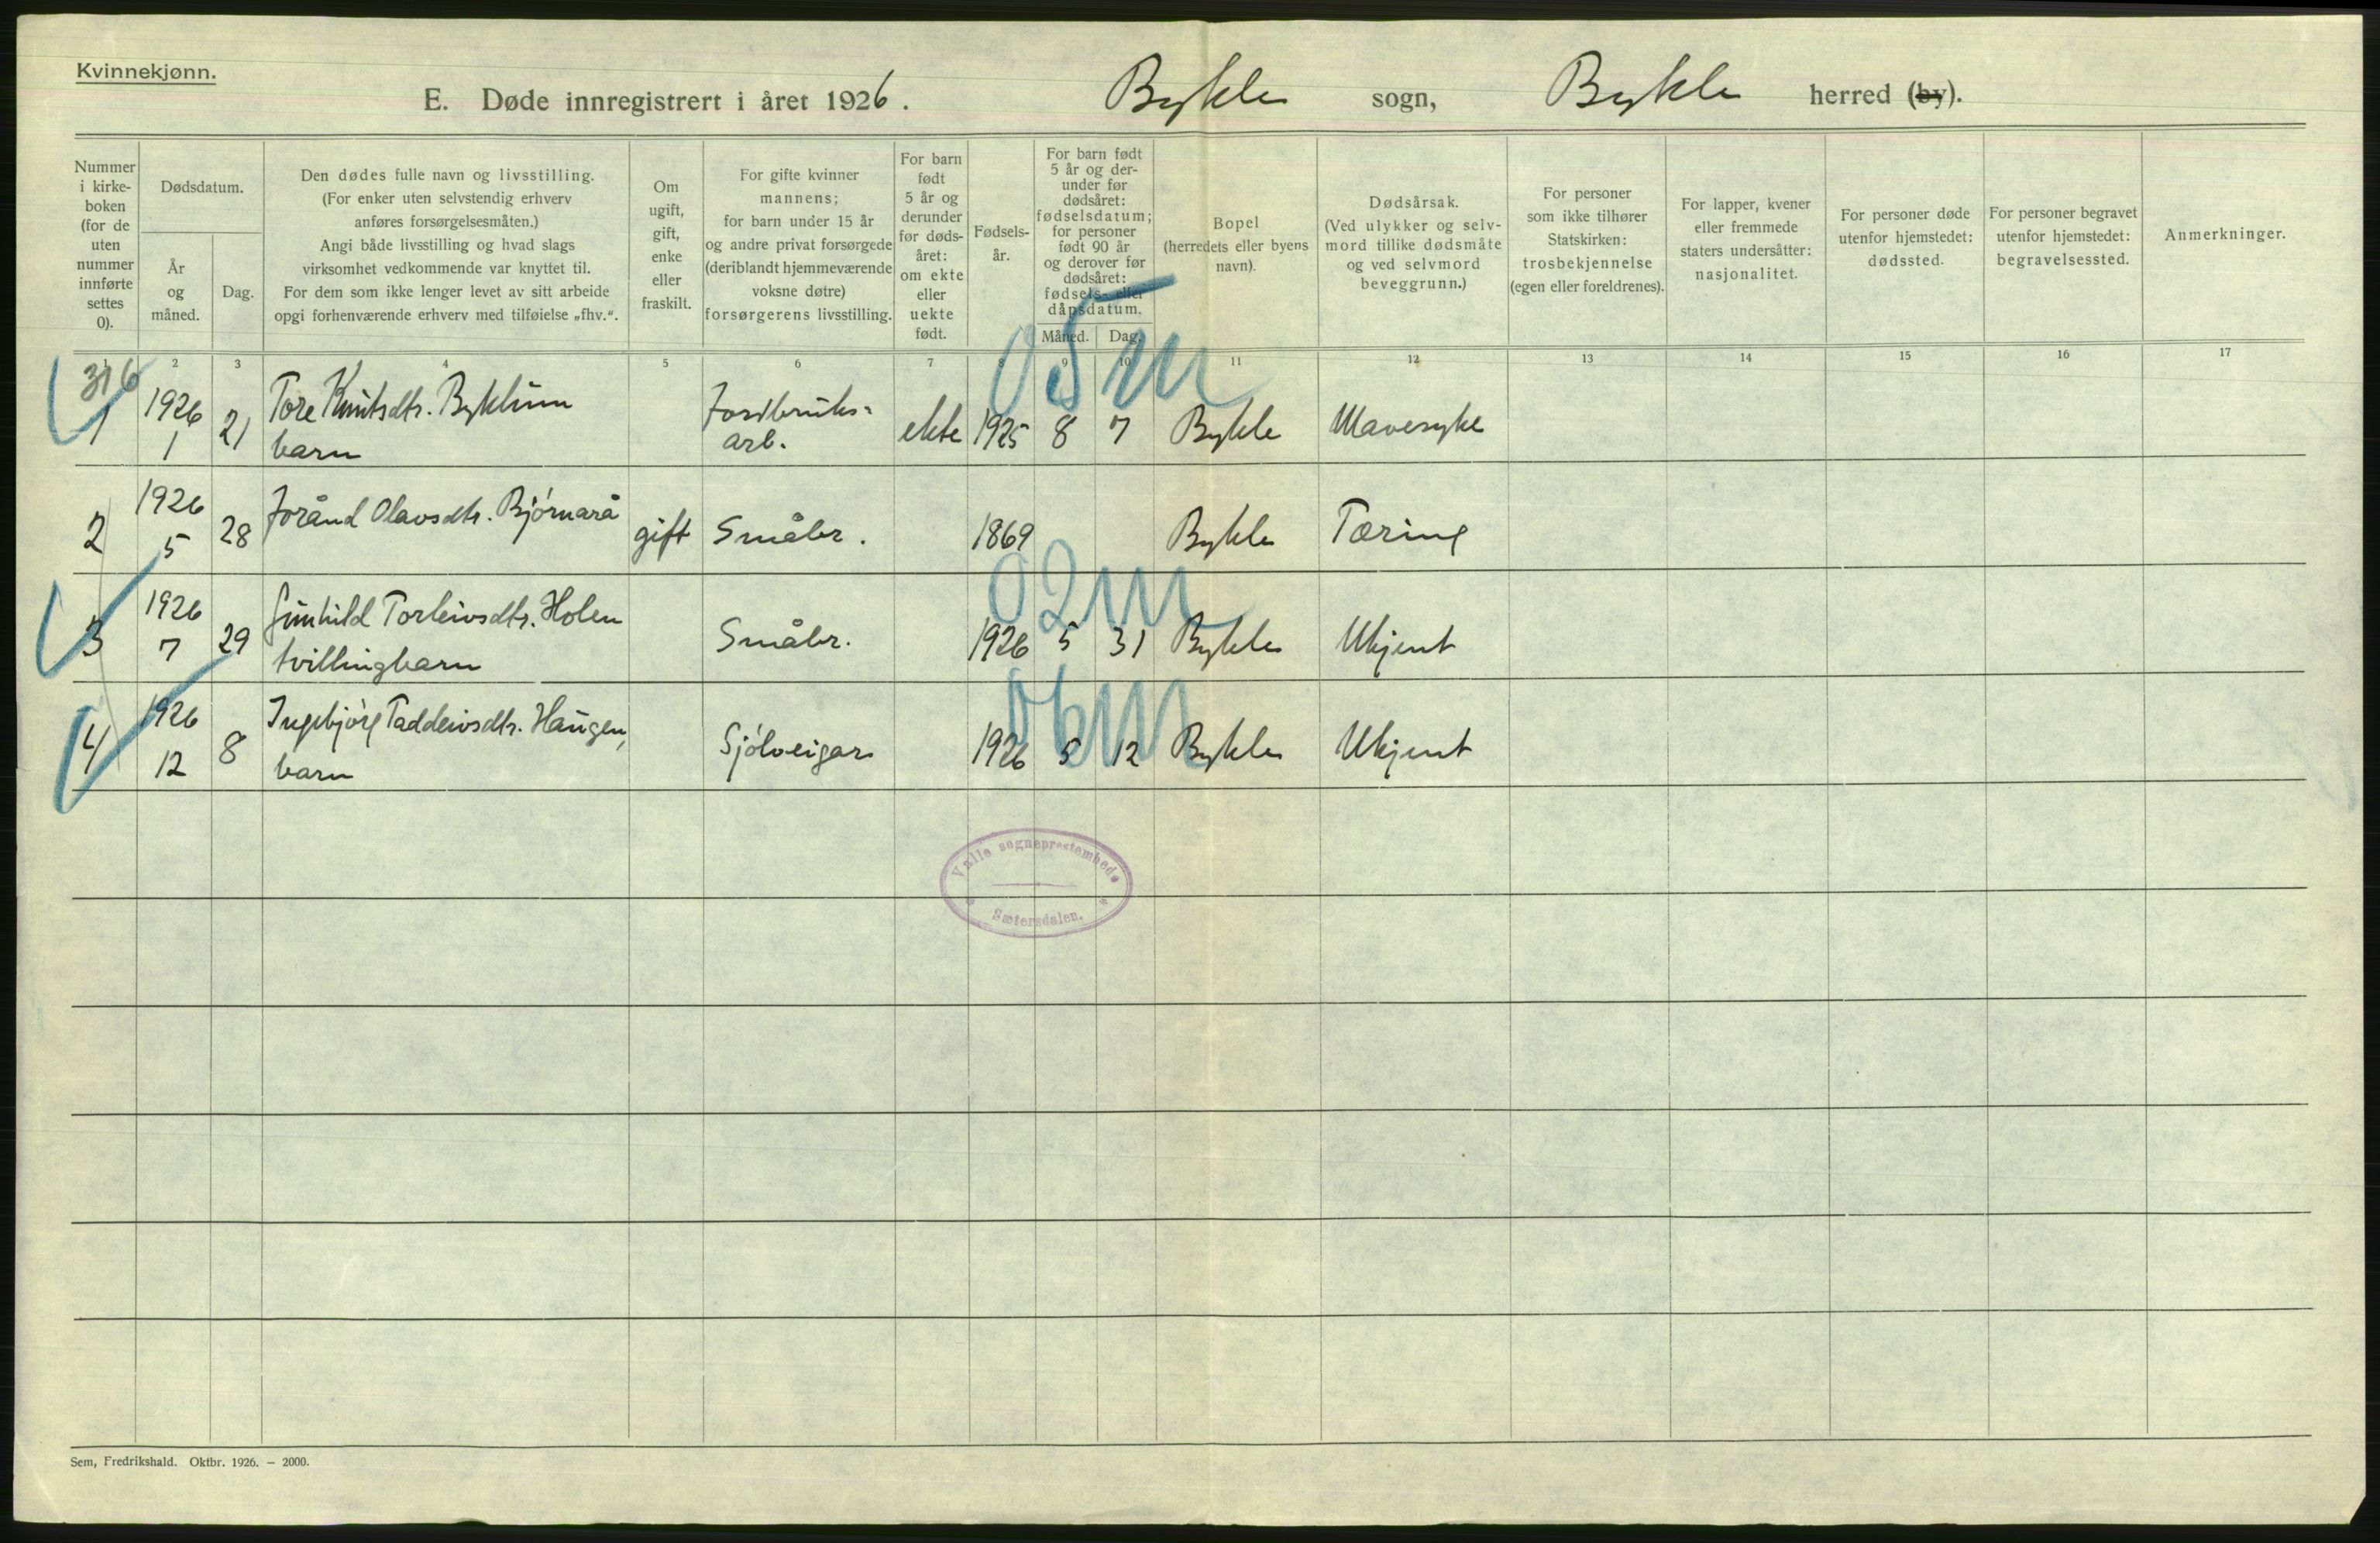 Kvinnekjønn.
E. Døde innregistrert i året 1926. Bykle sogn, Bykle herred (by).
Nummer
i kirke-
boken
(for de
uten
nummer
innførte
settes
0).
Dødsdatum.
År
og
måned.
Dag.
Den dødes fulle navn og livsstilling.
(For enker uten selvstendig erhverv
anføres forsørgelsesmåten.)
Angi både livsstilling og hvad slags
virksomhet vedkommende var knyttet til.
For dem som ikke lenger levet av sitt arbeide
opgi forhenværende erhverv med tilføielse „fhv.“.
Om
ugift,
gift,
enke
eller
fraskilt.
For gifte kvinner
mannens;
for barn under 15 år
og andre privat forsørgede
(deriblandt hjemmeværende
voksne døtre)
forsørgerens livsstilling.
For barn
født
5 år og
derunder
før døds-
året:
om ekte
eller
uekte
født.
Fødsels-
år.
For barn født
5 år og der-
under før
dødsåret:
fødselsdatum;
for personer
født 90 år
og derover før
dødsåret:
fødsels- eller
dåpsdatum.
Måned. Dag.
Bopel
(herredets eller byens
navn).
Dødsårsak.
(Ved ulykker og selv-
mord tillike dødsmåte
og ved selvmord
beveggrunn.)
For personer
som ikke tilhører
Statskirken:
trosbekjennelse
(egen eller foreldrenes).
For lapper, kvener
eller fremmede
staters undersåtter:
nasjonalitet.
For personer døde
utenfor hjemstedet:
dødssted.
For personer begravet
utenfor hjemstedet:
begravelsessted.
Anmerkninger.
2 3 4 5 6 7 8 9 10 11 12 13 14 15 16 17
316
05 m
1 1926 1 21 Tore Knutsdtr. Byklum
barn
Jordbruks-
arb.
ekte 1925 8 7 Bykle Mavesyke
2 1926 5 28 Jorånd Olavsdtr. Bjørnarå gift Småbr. 1869 Bykle Tæring
02 m
3 1926 7 29 Gunhild Torleivsdtr. Holen
tvillingbarn
Småbr. 1926 5 31 Bykle Ukjent
06 m
4 1926 12 8 Ingebjørg Taddeivsdtr. Haugen,
barn
Sjølveigar 1926 5 12 Bykle Ukjent
Valle sogneprestembede
Sætersdalen.
Sem, Fredrikshald. Oktbr. 1926. – 2000.